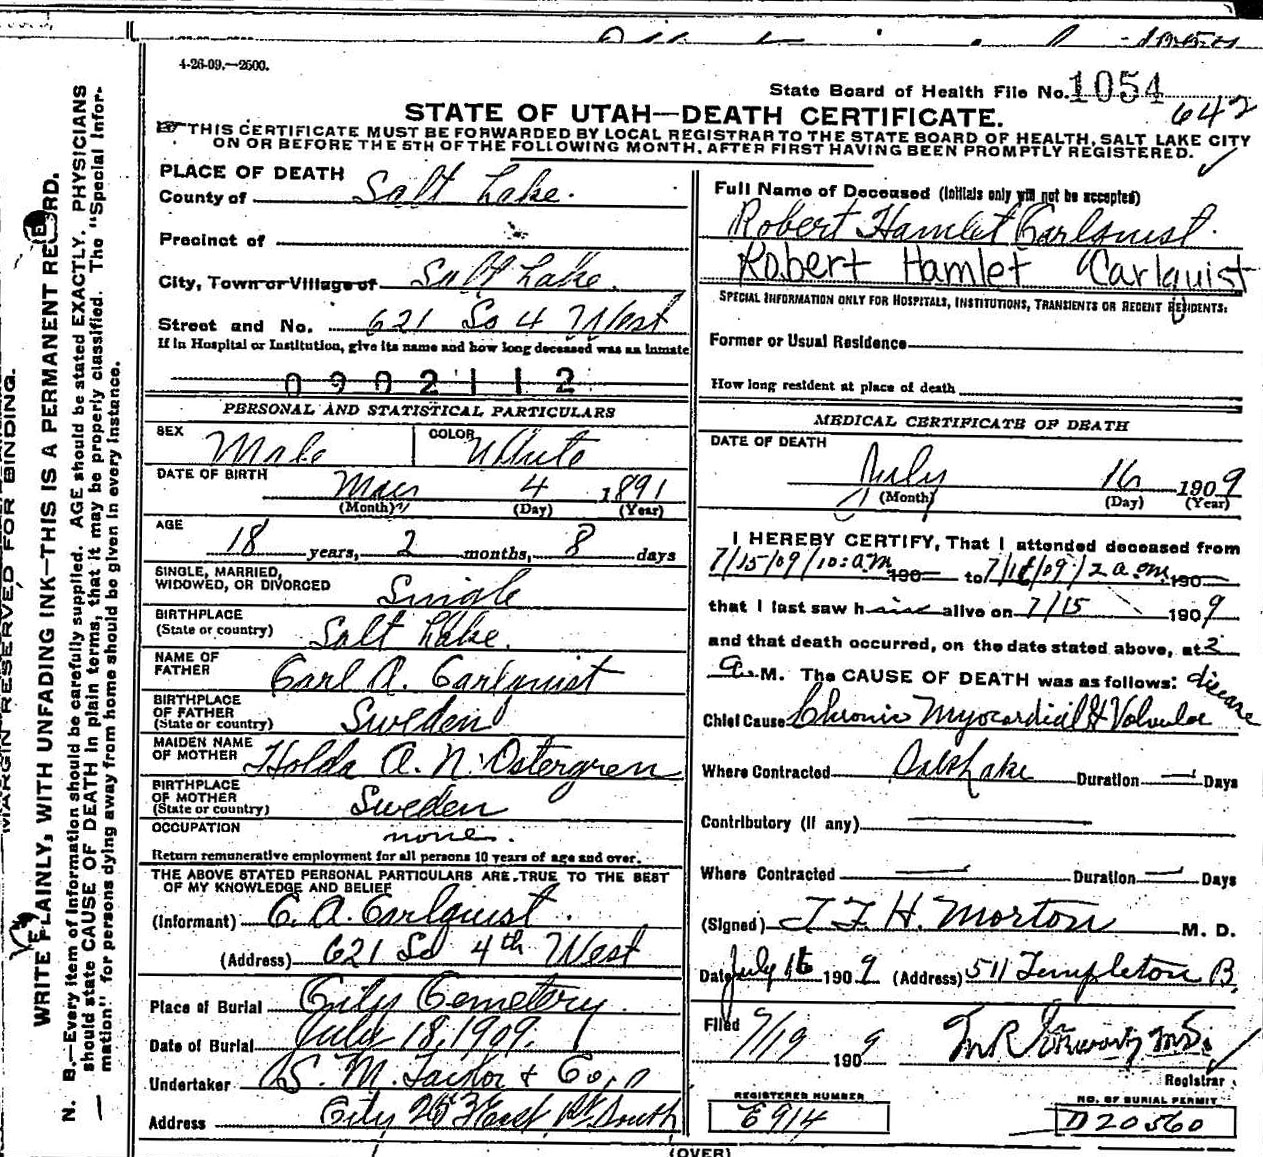 4-26-09.—2500.
State Board of Health File No. 1054
642
STATE OF UTAH—DEATH CERTIFICATE.
THIS CERTIFICATE MUST BE FORWARDED BY LOCAL REGISTRAR TO THE STATE BOARD OF HEALTH, SALT LAKE CITY
ON OR BEFORE THE 5TH OF THE FOLLOWING MONTH, AFTER FIRST HAVING BEEN PROMPTLY REGISTERED.
MARGIN RESERVED FOR BINDING.
WRITE PLAINLY, WITH UNFADING INK—THIS IS A PERMANENT RECORD.
N. B.—Every item of information should be carefully supplied. AGE should be stated EXACTLY. PHYSICIANS
should state CAUSE OF DEATH in plain terms, that it may be properly classified. The "Special Infor-
mation" for persons dying away from home should be given in every instance.
PLACE OF DEATH
County of Salt Lake.
Precinct of
City, Town or Village of Salt Lake.
Street and No. 621 So 4 West
If in Hospital or Institution, give its name and how long deceased was an inmate
0902112
PERSONAL AND STATISTICAL PARTICULARS
SEX Male COLOR White
DATE OF BIRTH May 4 1891
(Month) (Day) (Year)
AGE
18 years, 2 months, 8 days
SINGLE, MARRIED,
WIDOWED, OR DIVORCED Single
BIRTHPLACE
(State or country) Salt Lake.
NAME OF
FATHER Carl A. Carlquist
BIRTHPLACE
OF FATHER
(State or country) Sweden
MAIDEN NAME
OF MOTHER Holda A. N. Ostergren
BIRTHPLACE
OF MOTHER
(State or country) Sweden
OCCUPATION none.
Return remunerative employment for all persons 10 years of age and over.
THE ABOVE STATED PERSONAL PARTICULARS ARE TRUE TO THE BEST
OF MY KNOWLEDGE AND BELIEF
(Informant) C. A. Carlquist.
(Address) 621 So 4th West
Place of Burial City Cemetery.
Date of Burial July 18, 1909.
Undertaker S. M. Taylor & Co.
Address City 253 East 1st South
Full Name of Deceased (Initials only will not be accepted)
Robert Hamlet Carlquist.
Robert Hamlet Carlquist
SPECIAL INFORMATION ONLY FOR HOSPITALS, INSTITUTIONS, TRANSIENTS OR RECENT RESIDENTS:
Former or Usual Residence
How long resident at place of death
MEDICAL CERTIFICATE OF DEATH
DATE OF DEATH
July 16 1909
(Month) (Day) (Year)
I HEREBY CERTIFY, That I attended deceased from
7/15/09/10:am 190 to 7/16/09/2 a.m. 190
that I last saw him alive on 7/15 1909
and that death occurred, on the date stated above, at 3
a. M. The CAUSE OF DEATH was as follows: disease
Chief Cause Chronic Myocardial & Valvular
Where Contracted Salt Lake Duration — Days
Contributory (if any)
Where Contracted — Duration — Days
(Signed) T. F. H. Morton M. D.
Date July 16 1909 (Address) 511 Templeton B.
Filed 7/19 1909
Registrar
REGISTERED NUMBER
E914
NO. OF BURIAL PERMIT
D20560
(OVER)